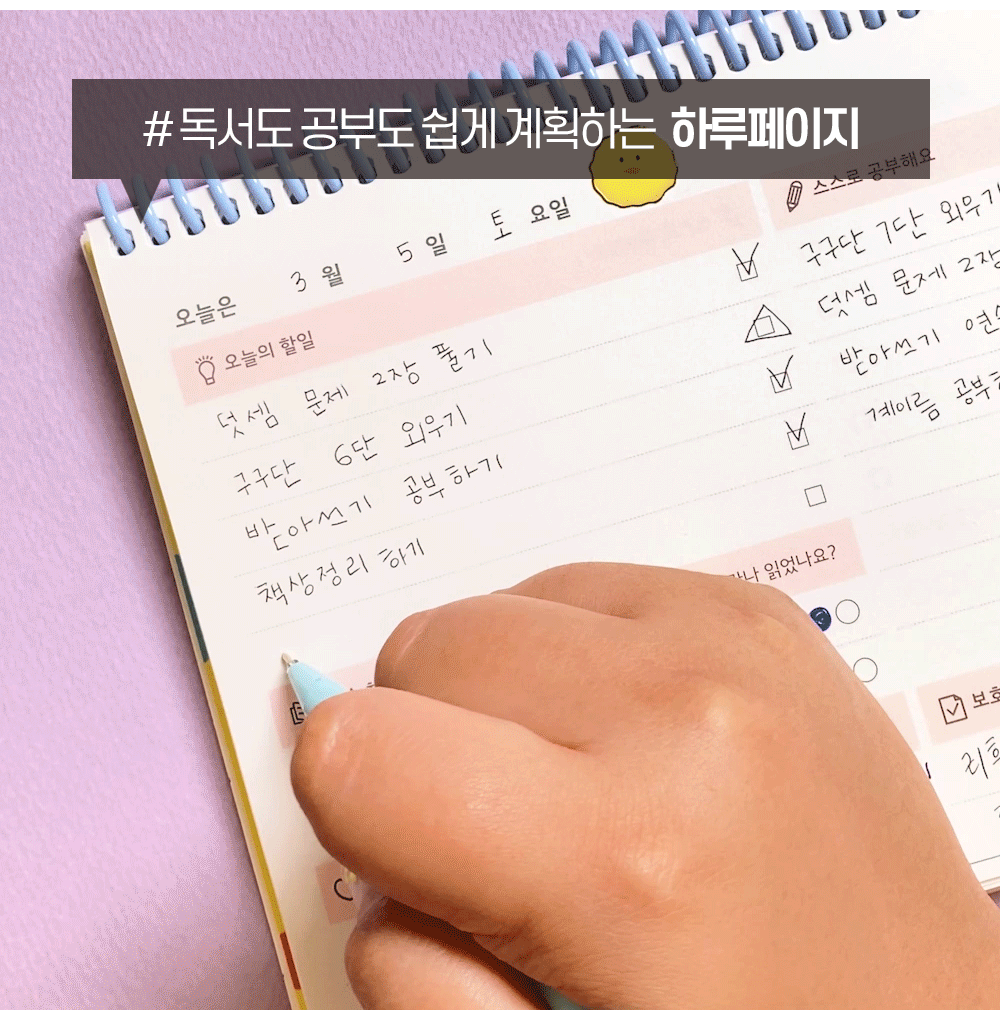 # 독서도 공부도 쉽게 계획하는 하루페이지
오늘은 3 월 5 일 토 요일
오늘의 할일
덧셈 문제 2장 풀기
구구단 6단 외우기
받아쓰기 공부하기
책상정리 하기
스스로 공부해요
구구단 7단 외우기
덧셈 문제 2장
받아쓰기
계이름
읽었나요?